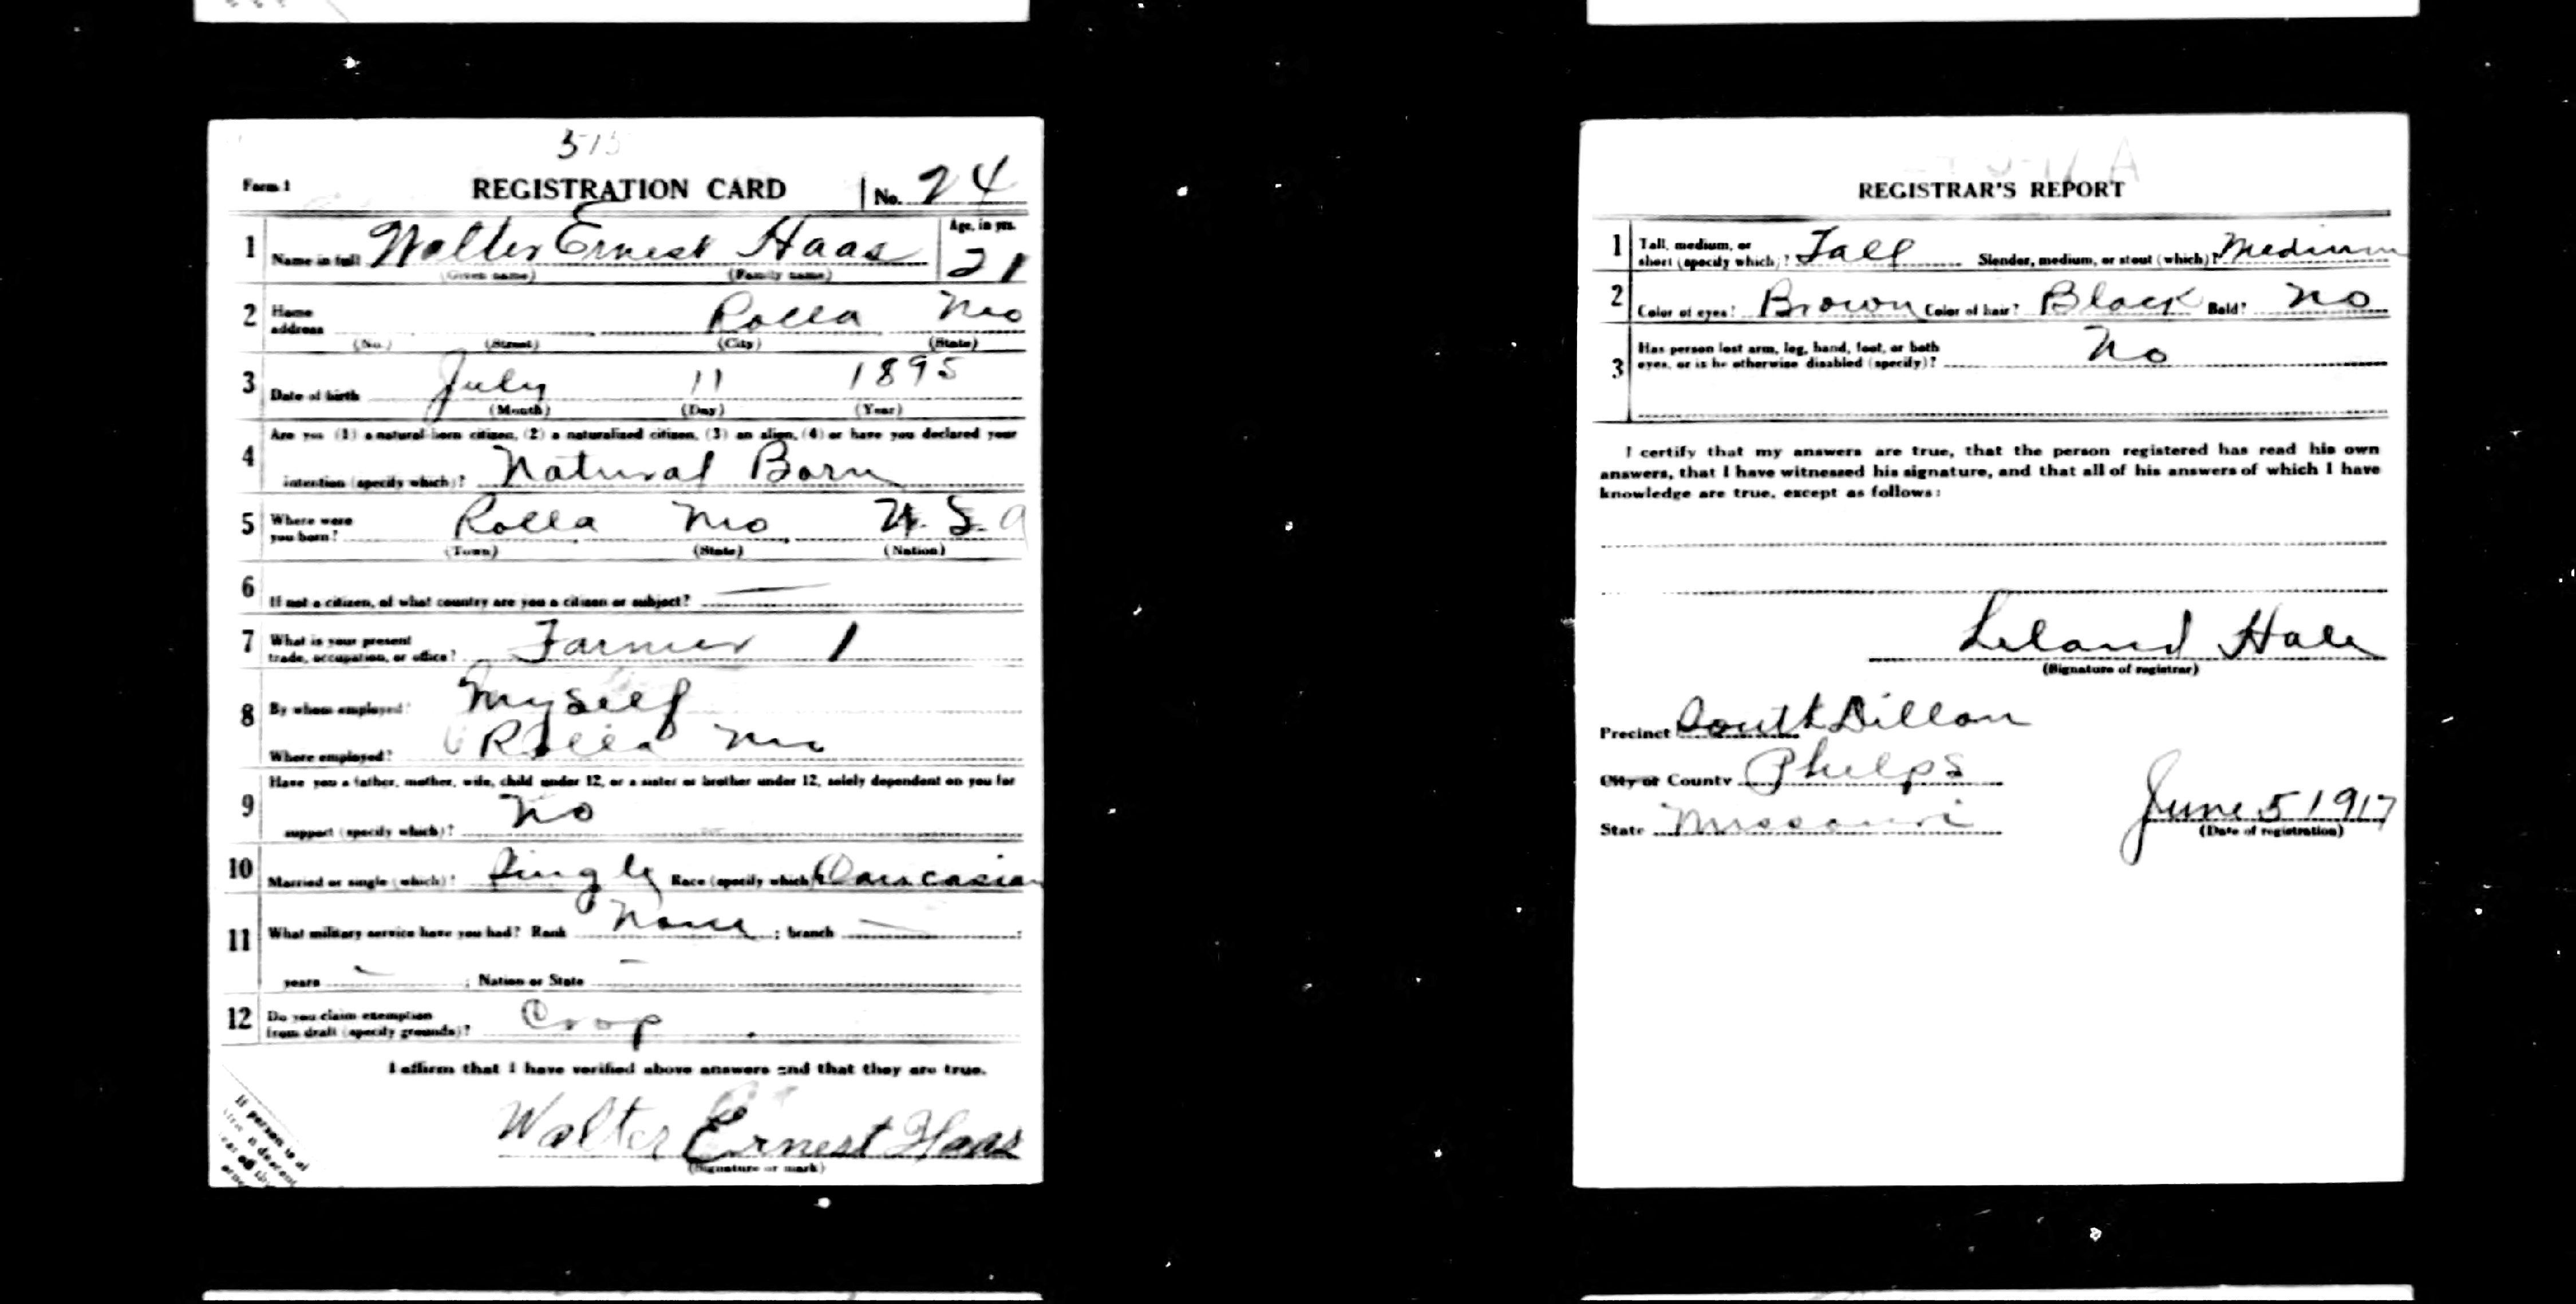 515
Form 1 REGISTRATION CARD No. 24
1 Name in full Walter Ernest Haas Age, in yrs. 21
(Given name) (Family name)
2 Home address Rolla Mo
(No.) (Street) (City) (State)
3 Date of birth July 11 1895
(Month) (Day) (Year)
4 Are you (1) a natural-born citizen, (2) a naturalized citizen, (3) an alien, (4) or have you declared your
intention (specify which)? Natural Born
5 Where were you born? Rolla Mo U.S.A
(Town) (State) (Nation)
6 If not a citizen, of what country are you a citizen or subject? —
7 What is your present
trade, occupation, or office? Farmer 1
8 By whom employed? Myself
Where employed? Rolla Mo
9 Have you a father, mother, wife, child under 12, or a sister or brother under 12, solely dependent on you for
support (specify which)? No
10 Married or single (which)? Single Race (specify which)? Caucasian
11 What military service have you had? Rank None ; branch — ;
years — ; Nation or State —
12 Do you claim exemption
from draft (specify grounds)? Crop
I affirm that I have verified above answers and that they are true.
Walter Ernest Haas
(Signature or mark)
If person is of
REGISTRAR'S REPORT
1 Tall, medium, or
short (specify which)? Tall Slender, medium, or stout (which)? Medium
2 Color of eyes? Brown Color of hair? Black Bald? No
3 Has person lost arm, leg, hand, foot, or both
eyes, or is he otherwise disabled (specify)? No
I certify that my answers are true, that the person registered has read his own
answers, that I have witnessed his signature, and that all of his answers of which I have
knowledge are true, except as follows:
Leland Hale
(Signature of registrar)
Precinct South Dillon
City or County Phelps
State Missouri June 5 1917
(Date of registration)